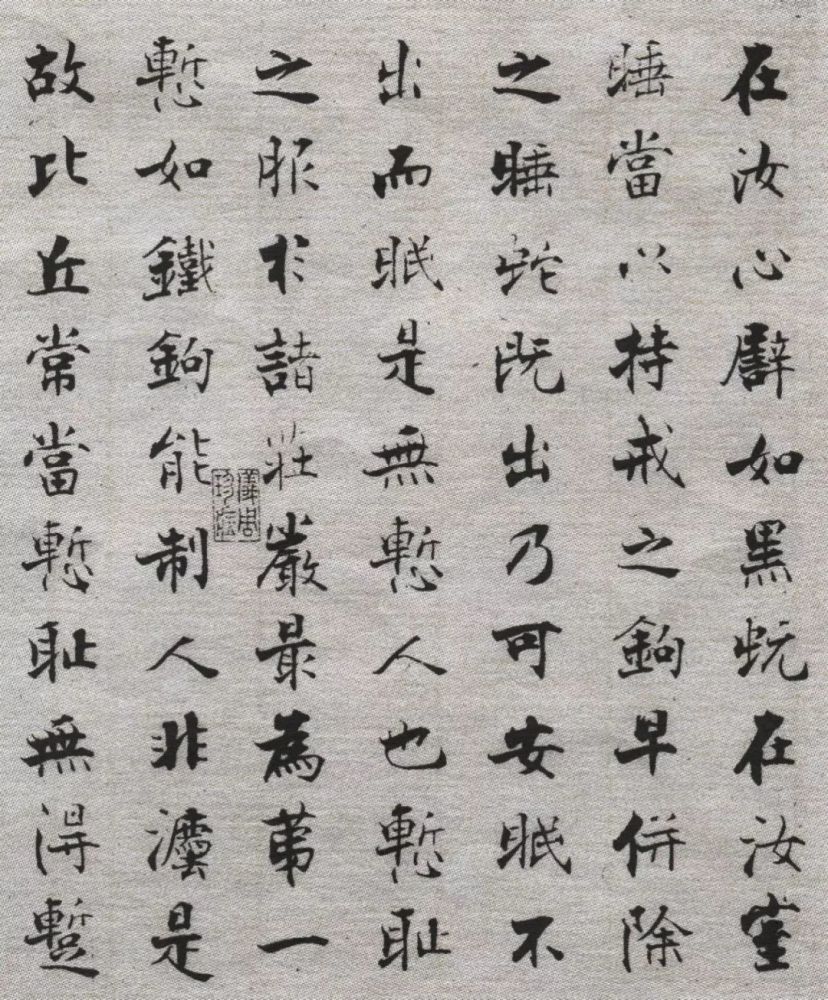 在汝心譬如黑蚖在汝室
睡當以持戒之鉤早併除
之睡蛇既出乃可安眠不
出而眠是無慙人也慙耻
之服於諸莊嚴最為苐一
慙如鐵鉤能制人非灋是
故比丘常當慙耻無淂蹔